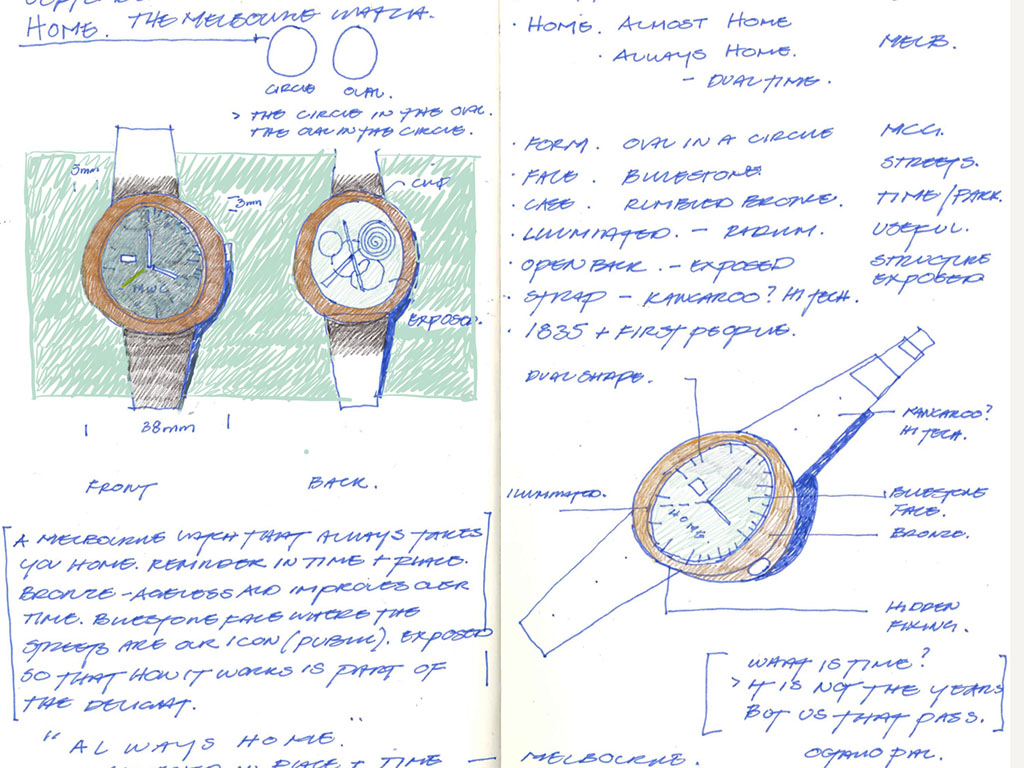 HOME. THE MELBOURNE WATCH.
CIRCLE OVAL.
> THE CIRCLE IN THE OVAL.
THE OVAL IN THE CIRCLE.
3mm
3mm
CLIP
MWC
EXPOSED.
38mm
FRONT BACK.
A MELBOURNE WATCH THAT ALWAYS TAKES
YOU HOME. REMINDER IN TIME + PLACE.
BRONZE - AGELESS AND IMPROVES OVER
TIME. BLUESTONE FACE WHERE THE
STREETS ARE OUR ICON (PUBLIC). EXPOSED
SO THAT HOW IT WORKS IS PART OF
THE DELIGHT.
"ALWAYS HOME."
PLACE + TIME —
· HOME. ALMOST HOME
· ALWAYS HOME. MELB.
- DUAL TIME.
· FORM. OVAL IN A CIRCLE MCG.
· FACE. BLUESTONE STREETS.
· CASE. RUMBLED BRONZE. TIME/PARK.
· ILLUMINATED. - RADIUM. USEFUL.
· OPEN BACK. - EXPOSED STRUCTURE
EXPOSED
· STRAP - KANGAROO? HI TECH.
· 1835 + FIRST PEOPLE.
DUAL SHAPE.
KANGAROO?
HI TECH.
ILLUMINATED.
HOME
BLUESTONE
FACE.
BRONZE.
HIDDEN
FIXING.
WHAT IS TIME?
> IT IS NOT THE YEARS
BUT US THAT PASS.
MELBOURNE.